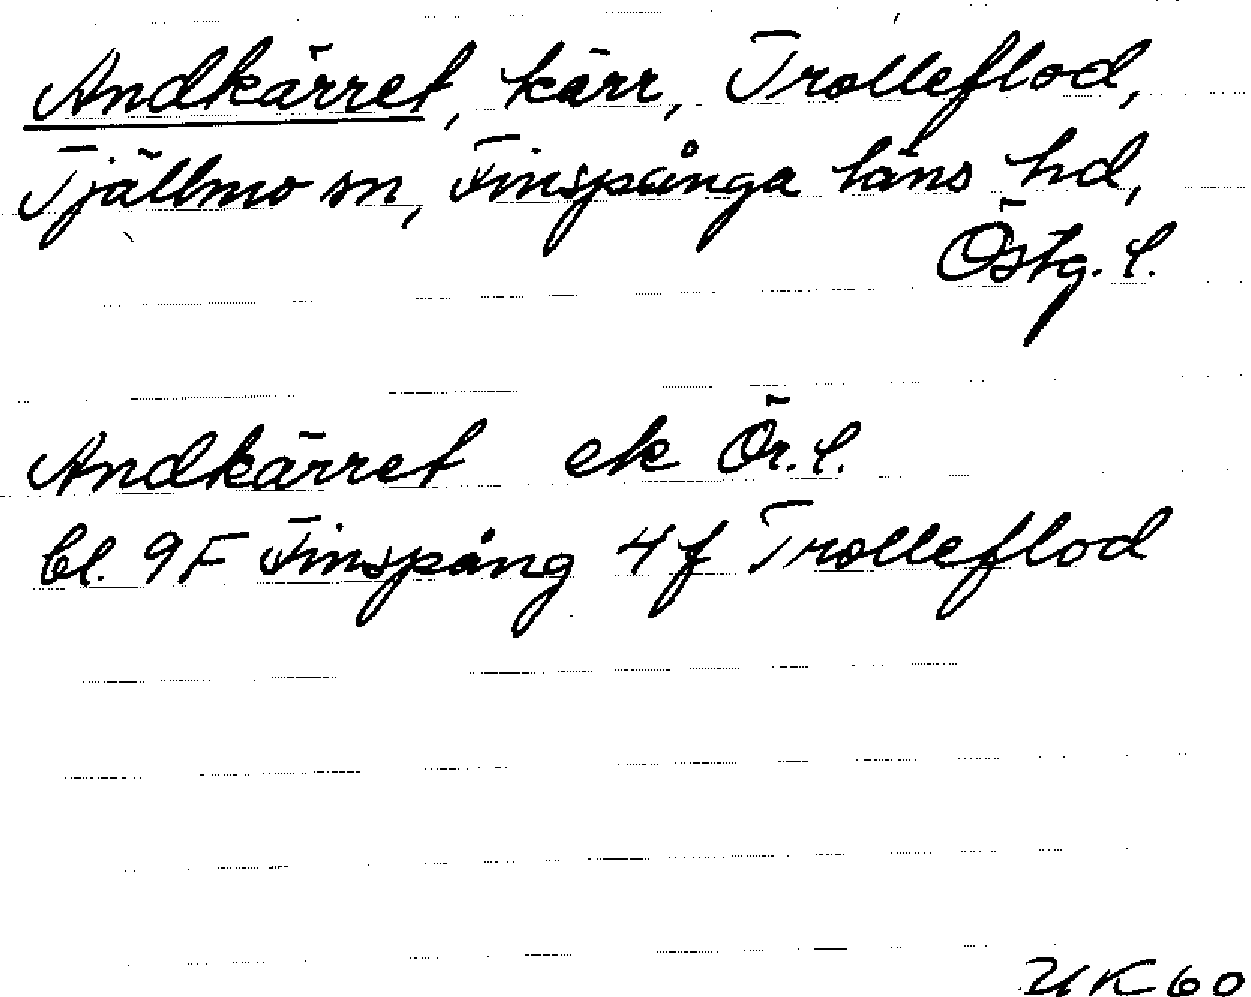 Andkärret, kärr, Trolleflod,
Tjällmo sn, Finspånga läns hd,
Östg. l.
Andkärret ek Ör. l.
bl. 9F Finspång 4f Trolleflod
UK60